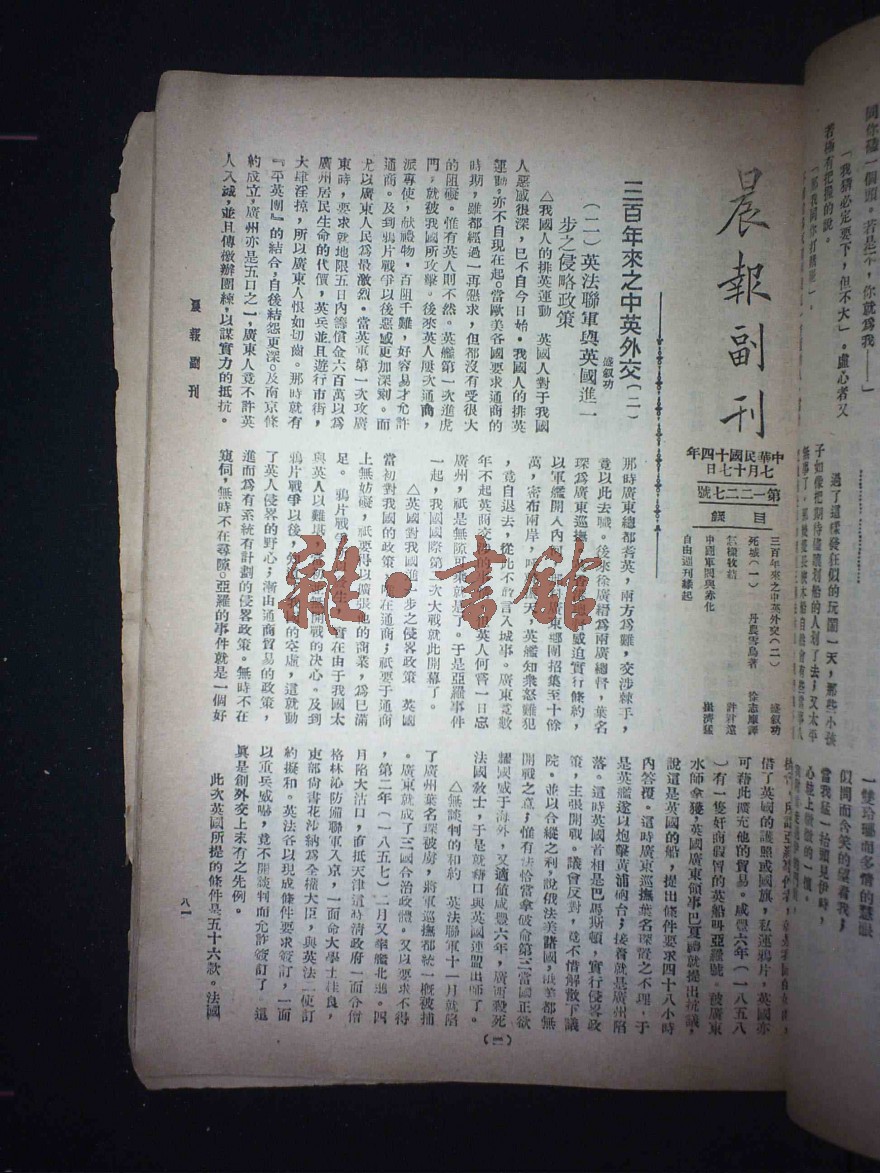 晨報副刊
中華民國十四年
七月十七日
第一二二七號
目錄
三百年來之中英外交(二) 盛叙功
死城(一) 丹農雪烏著 徐志摩譯
無欄牧結 許君遠
中國軍閥與赤化 張濟猛
自由週刊緣起
三百年來之中英外交(二)
盛叙功
(二)英法聯軍與英國進一
步之侵略政策
△我國人的排英運動 英國人對于我國
人惡感很深,已不自今日始。我國人的排英
運動,亦不自現在起。當歐美各國要求通商的
時期,雖都經過一再懇求,但都沒有受很大
的阻礙。惟有英人則不然。英艦第一次進虎
門,就被我國所攻擊。後來英人屢次通商,
派專使,献禮物,百阻千難,好容易才允許
通商。及到鴉片戰爭以後惡感更加深刻。而
尤以廣東人民為最激烈。當英軍第一次攻廣
東時,要求就地限五日內籌償金六百萬以為
廣州居民生命的代價,英兵並且遊行市街,
大肆淫掠,所以廣東人恨如切齒。那時就有
『平英團』的結合,自後結怨更深。及南京條
約成立,廣州亦是五口之一,廣東人竟不許英
人入城,並且傳檄辦團練,以謀實力的抵抗。
那時廣東總都耆英,兩方為難,交涉棘手,
竟以此去職。後來徐廣縉為兩廣總督,葉名
琛為廣東巡撫,英 威迫實行條約,
以軍艦開入內河 廣東鄉團招集至十餘
萬,密布兩岸,呼 天,英艦知衆怒難犯
,竟自退去,從此不敢言入城事。廣東竟數
年不起英商交涉的 英人何嘗一日忘
廣州,祇是無隙可乘就是了。于是亞羅事件
一起,我國國際第二次大戰就此開幕了。
△英國對我國進一步之侵略政策 英國
當初對我國的政策 在通商;祇要于通商
上無妨礙,祇要得以廣張他的商業,為已滿
足。鴉片戰爭 生,實在由于我國太
與英人以難堪, 開戰的决心。及到
鴉片戰爭以後, 的空虛,這就動
了英人侵畧的野心;漸由通商貿易的政策,
進而為有系統有計劃的侵畧政策。無時不在
窺伺,無時不在尋隙。亞羅的事件就是一個好
借了英國的護照或國旗,私運鴉片,英國亦
可藉此廣充他的貿易。咸豐六年(一八五八
)有一隻奸商假冒的英船叫亞羅號。被廣東
水師拿獲,英國廣東領事巴夏禮就提出抗議,
說這是英國的船,提出條件要求四十八小時
內答覆。這時廣東巡撫葉名琛置之不理,于
是英艦遂以炮擊黃浦砲台;接着就是廣州陷
落。這時英國首相是巴馬斯頓,實行侵畧政
策,主張開戰。議會反對,竟不惜解散下議
院。並以合縱之利,說俄法美諸國,俄美都無
開戰之意;惟有法恰當拿破命第三當國正欲
耀國威于海外,又適值咸豐六年,廣西殺死
法國教士,于是就藉口與英國連盟出師了。
△無談判的和約 英法聯軍十一月就陷
了廣州葉名琛被虜,將軍巡撫都統一概被捕
。廣東就成了三國合治政體。又以要求不得
,第二年(一八五七)二月又率艦北進。四
月陷大沽口,直抵天津這時清政府一面令僧
格林沁防備聯軍入京,一面命大學士桂良,
東部尚書花沙納為全權大臣,與英法二使訂
約擬和。英法各以現成條件要求簽訂,一面
以重兵威嚇,竟不開談判而允許簽訂了。這
真是創外交上未有之先例。
此次英國所提的條件是五十六款。法國
晨報副刊
八一
(一)
雜·書館
同你碰一個頭。若是不,你就為我——」
「我猜必定要下,但不大」。虛心者又
若極有把握的說。
過了這樣發狂似的玩鬧一天,那些小孩
子如像把期待儘讓划船的人划了去;又太平
一雙玲瓏而多情的慧眼
似開而含笑的望着我;
當我猛一抬頭見伊時,